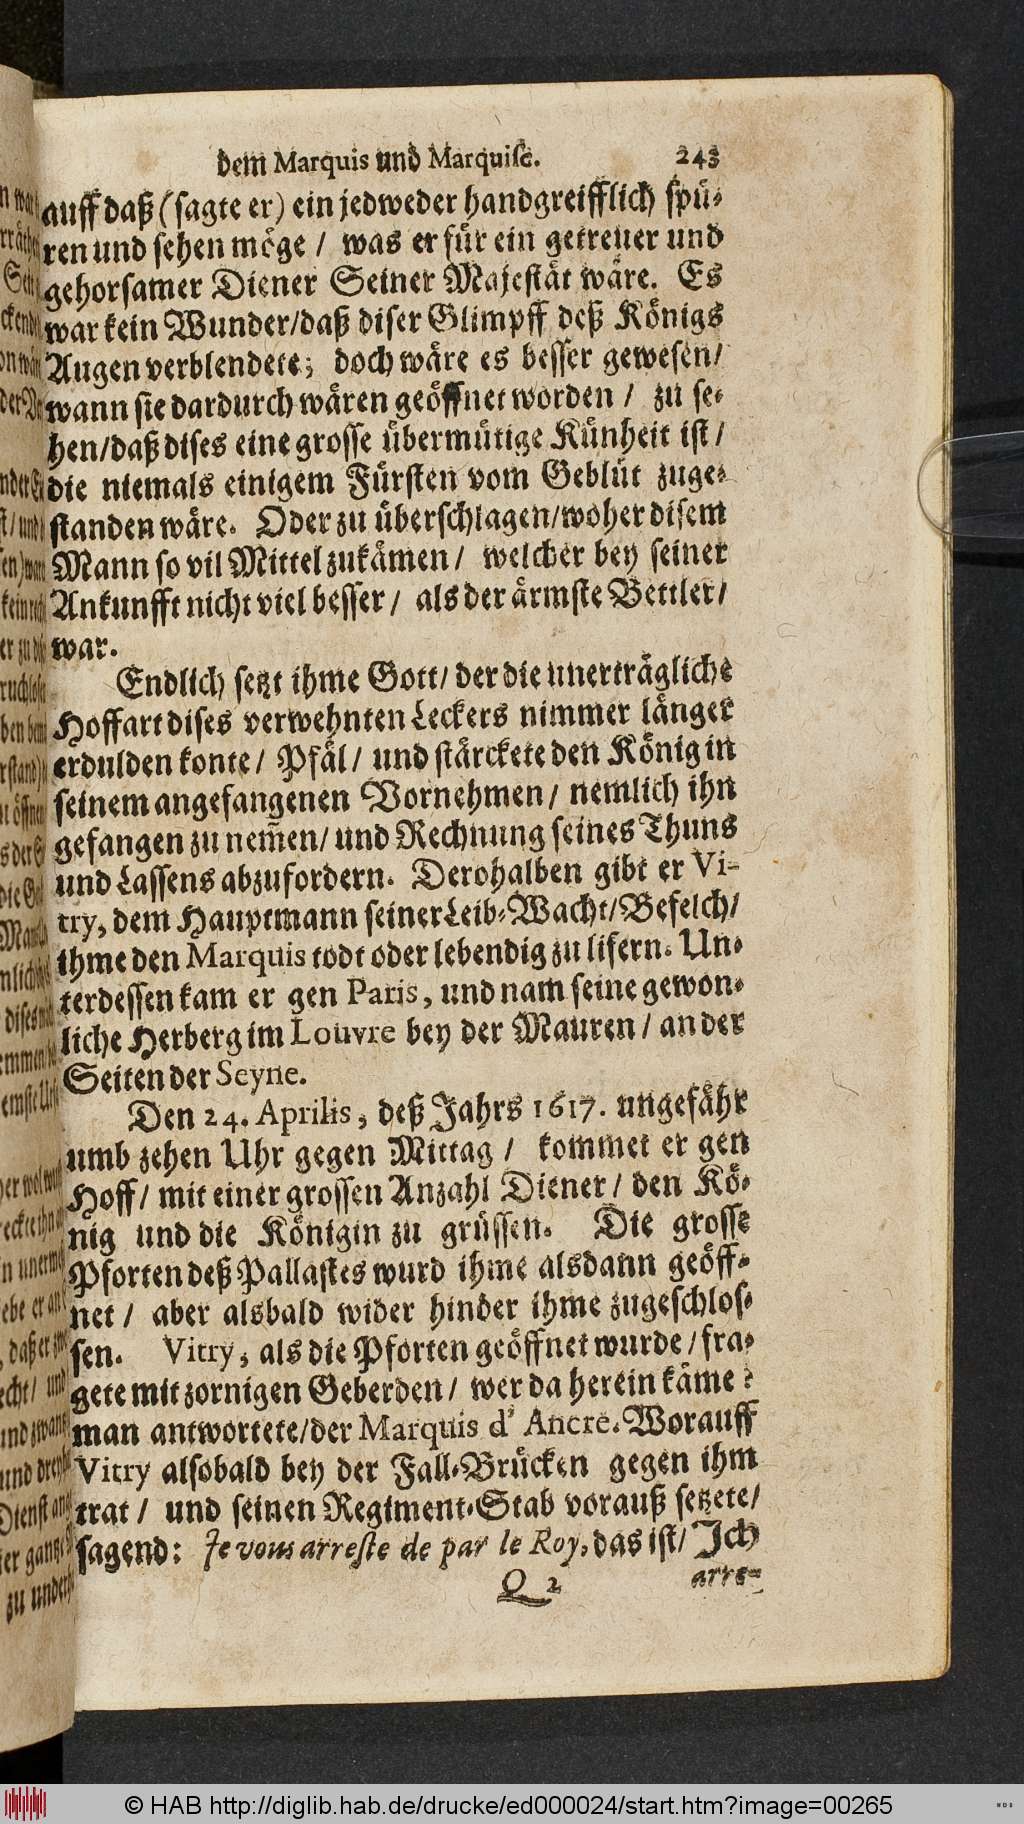 dem Marquis und Marquise. 243
auff daß (sagte er) ein jedweder handgreifflich spü-
ren und sehen möge / was er für ein getreuer und
gehorsamer Diener Seiner Majestät wäre. Es
war kein Wunder/daß diser Glimpff deß Königs
Augen verblendete; doch wäre es besser gewesen/
wann sie dardurch wären geöffnet worden / zu se-
hen/daß dises eine grosse übermütige Künheit ist /
die niemals einigem Fürsten vom Geblüt zuge-
standen wäre. Oder zu überschlagen/woher disem
Mann so vil Mittel zukämen / welcher bey seiner
Ankunfft nicht viel besser / als der ärmste Bettler/
war.
Endlich setzt ihme Gott/ der die unerträgliche
Hoffart dises verwehnten Leckers nimmer länger
erdulden konte / Pfäl / und stärckete den König in
seinem angefangenen Vornehmen / nemlich ihn
gefangen zu nem̃en/ und Rechnung seines Thuns
und Lassens abzufordern. Derohalben gibt er Vi-
try, dem Hauptmann seiner Leib-Wacht/Befelch/
ihme den Marquis todt oder lebendig zu lifern. Un-
terdessen kam er gen Paris, und nam seine gewon-
liche Herberg im Louvre bey der Mauren / an der
Seiten der Seyne.
Den 24. Aprilis, deß Jahrs 1617. ungefähr
umb zehen Uhr gegen Mittag / kommet er gen
Hoff/ mit einer grossen Anzahl Diener / den Kö-
nig und die Königin zu grüssen. Die grosse
Pforten deß Pallastes wurd ihme alsdann geöff-
net / aber alsbald wider hinder ihme zugeschlos-
sen. Vitry, als die Pforten geöffnet wurde / fra-
gete mit zornigen Geberden / wer da herein käme?
man antwortete/der Marquis d' Ancre. Worauff
Vitry alsobald bey der Fall-Brücken gegen ihm
trat / und seinen Regiment-Stab vorauß setzete/
sagend: Je vous arreste de par le Roy, das ist/ Ich
Q 2 arre-
© HAB http://diglib.hab.de/drucke/ed000024/start.htm?image=00265